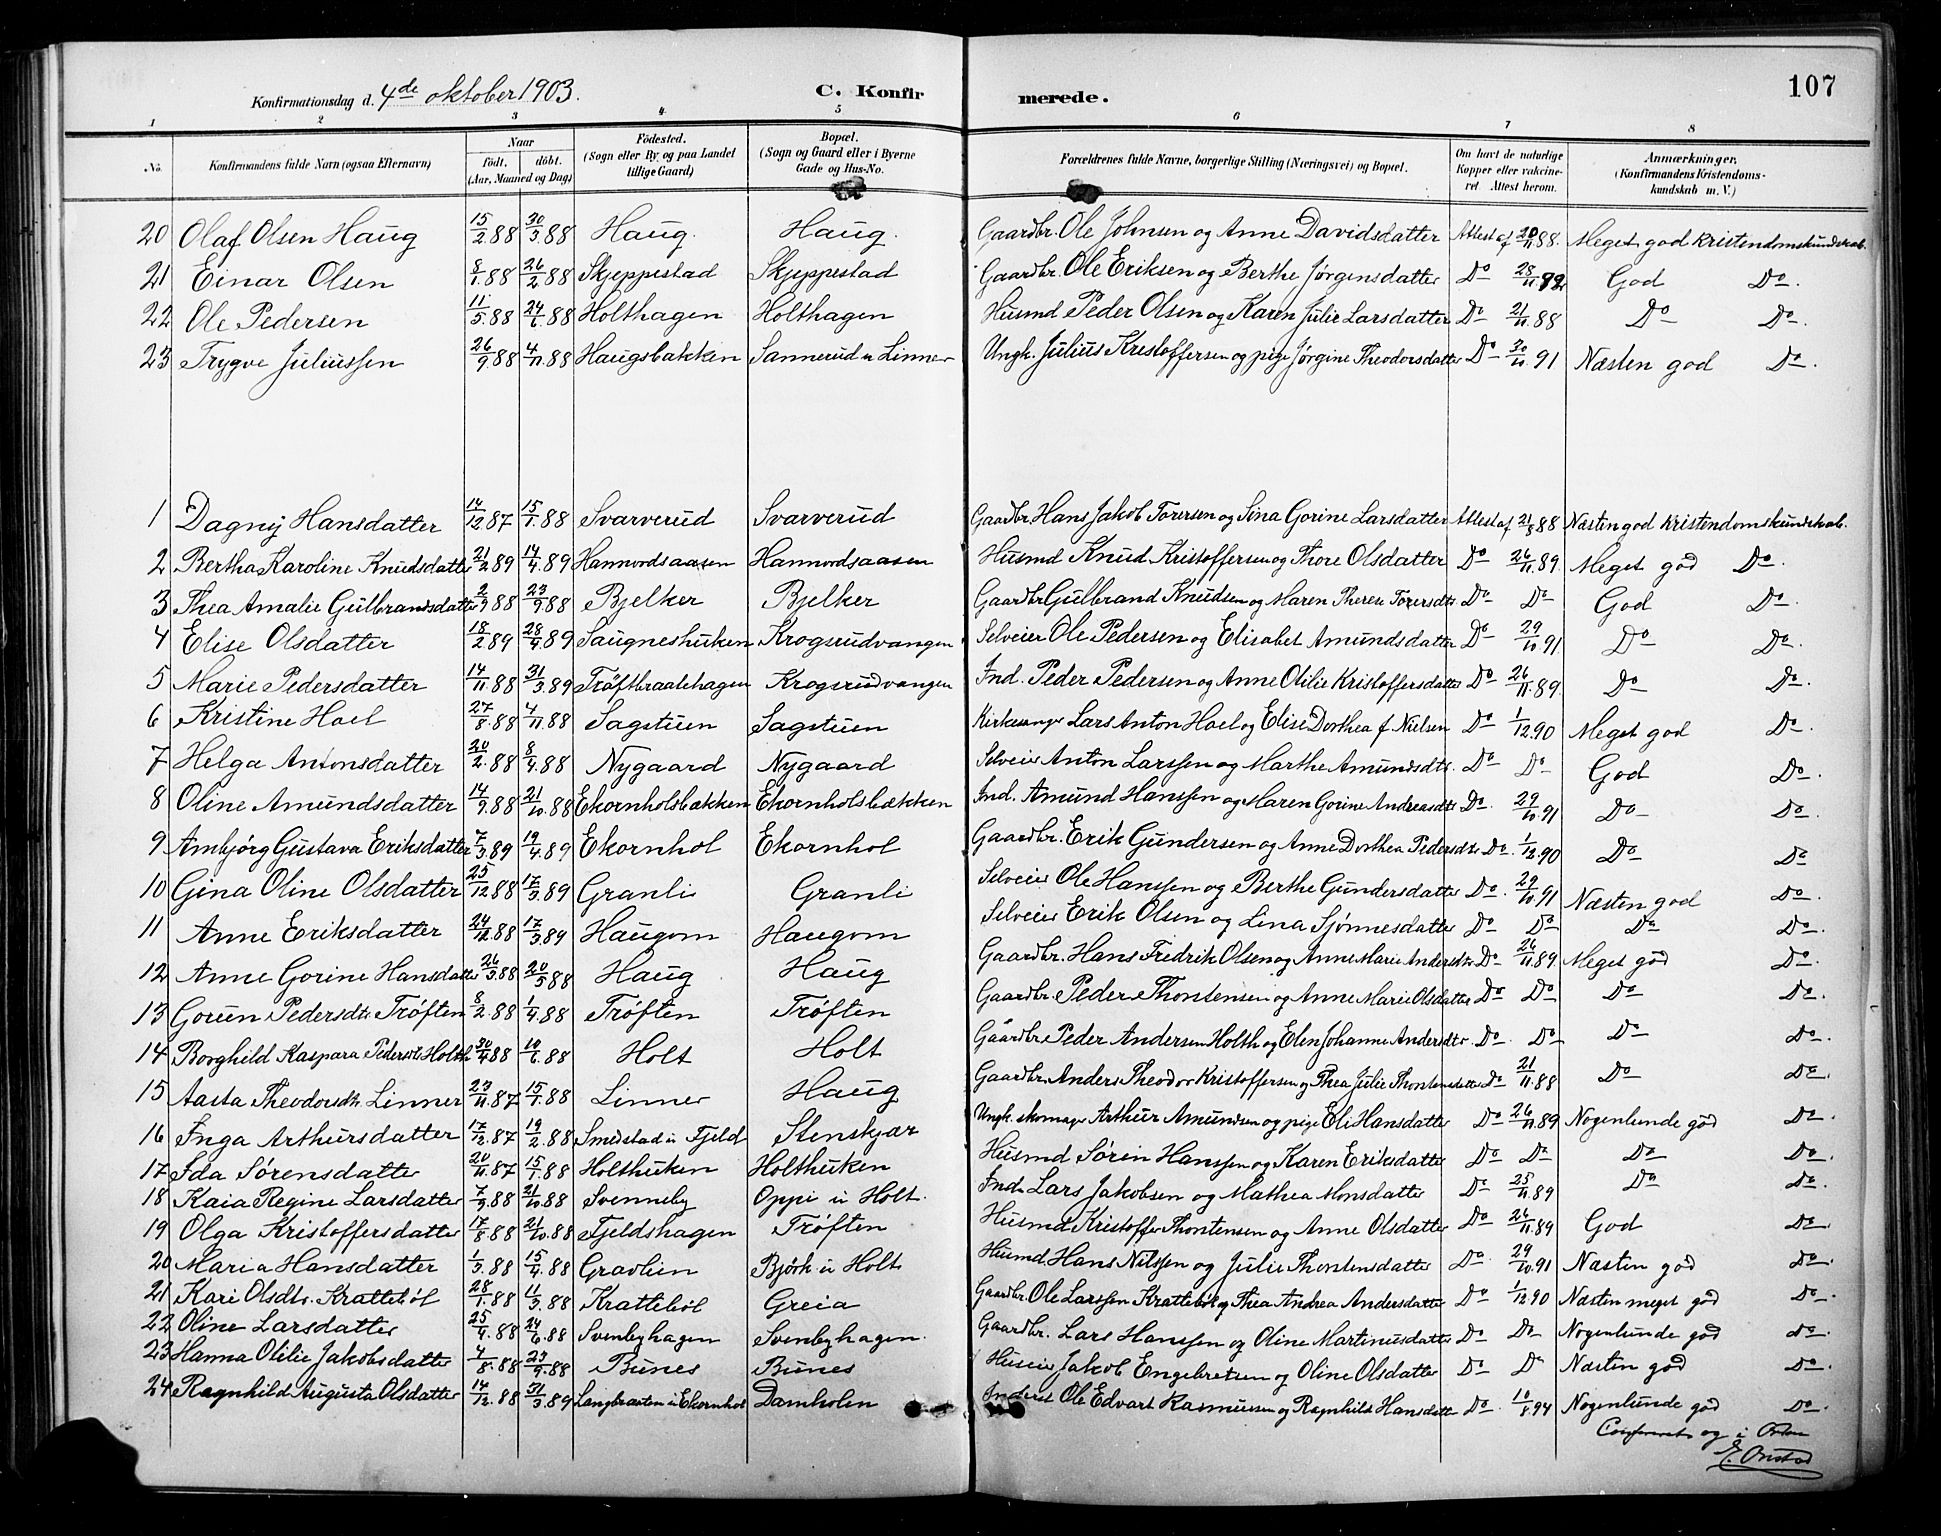 107
Konfirmationsdag d. 4de oktober 1903. C. Konfirmerede.
1 2 3 4 5 6 7 8
No. Konfirmandens fulde Navn (ogsaa Efternavn) Naar født, døbt. (Aar, Maaned og Dag) Fødested. (Sogn eller By og paa Landet tillige Gaard) Bopæl. (Sogn og Gaard eller i Byerne Gade og Hus-No. Forældrenes fulde Navne, borgerlige Stilling (Næringsvei) og Bopæl. Om havt de naturlige Kopper eller vakcineret. Attest herom. Anmærkninger. (Konfirmandens Kristendomskundskab m. V.)
20 Olaf Olsen Haug 15/2.88 30/3.88 Haug. Haug. Gaardbr. Ole Johnsen og Anne Davidsdatter Attest af 20/11.88. Meget god kristendomskundskab.
21 Einar Olsen 8/1.88 26/2.88 Skjeppestad Skjeppestad Gaardbr. Ole Eriksen og Berthe Jørgensdatter Do 28/11. God Do.
22 Ole Pedersen 11/5.88 24/6.88 Holthagen Holthagen Husmd Peder Olsen og Karen Julie Larsdatter Do 21/11.88 Do Do.
23 Trygve Juliussen 26/9.88 4/11.88 Haugsbakken Sannerud u Linner Ungk. Julius Kristoffersen og pige Jørgine Theodorsdatter Do 30/10.91 Næsten god Do.
1 Dagny Hansdatter 14/12.87 15/1.88 Svarverud Svarverud Gaardbr. Hans Jakob Torersen og Sina Gorine Larsdatter Attest af 21/8.88 Næsten god kristendomskundskab.
2 Bertha Karoline Knudsdatter 21/2.89 14/4.89 Hannordsaasen Hannordsaasen Husmd Knud Kristoffersen og Thore Olsdatter Do 26/11.89. Meget god Do.
3 Thea Amalie Gulbrandsdatter 2/9.88 23/9.88 Bjelker Bjelker Gaardbr Gulbrand Knudsen og Maren Therese Torersdtr Do Do God Do.
4 Elise Olsdatter 18/2.89 28/4.89 Saugneshuken Krogsrudvangen Selveier Ole Pedersen og Elisabet Amundsdatter Do 29/10.91 Do Do.
5 Marie Pedersdatter 14/11.88 31/3.89 Trøftbraatehagen Krogsrudvangen Ind. Peder Pedersen og Anne Otilie Kristoffersdatter Do 26/11.89. Do Do.
6 Kristine Hoel 27/8.88 4/11.88 Sagstuen Sagstuen Kirkesanger Lars Anton Hoel og Elise Dorthea f. Nielsen Do 1/12.90 Meget god Do.
7 Helga Antonsdatter 20/2.88 8/4.88 Nygaard Nygaard Selveier Anton Larssen og Marthe Amundsdtr. Do Do God Do.
8 Oline Amundsdatter 14/9.88 21/10.88 Ekornholsbækken Ekornholsbækken Ind. Amund Hanssen og Maren Gorine Andreasdtr Do. 29/10.91 Do Do.
9 Ambjørg Gustava Eriksdatter 7/3.89 19/4.89 Ekornhol Ekornhol Gaardbr. Erik Gundersen og Anne Dorthea Pedersdtr Do. 1/12.90 Do Do
10 Gina Oline Olsdatter 25/12.88 17/3.89 Granli Granli Selveier Ole Hanssen og Berthe Gundersdatter Do. 29/10.91 Næsten god Do.
11 Anne Eriksdatter 24/12.88 17/3.89 Haugom Haugom Selveier Erik Olsen og Lina Sjønnesdatter Do Do Do Do.
12 Anne Gorine Hansdatter 26/3.88 20/5.88 Haug Haug Gaardbr. Hans Fredrik Olsen og Anne Marie Andersdtr Do 26/11.89. Meget god Do.
13 Gorun Pedersdtr Trøften 8/2.88 1/4.88 Trøften Trøften Gaardbr. Peder Thorstensen og Anne Marie Olsdatter Do Do Do Do.
14 Borghild Kaspara Pedersdtr Holth 30/4.88 10/6.88 Holt Holt Gaardbr Peder Andersen Holth og Elen Johanne Andersdtr. Do. Do Do Do.
15 Aasta Theodorsdtr. Linner 23/11.87 15/1.88 Linner Haug Gaardbr. Anders Theodor Kristoffersen og Thea Julie Thorstensdatter Do 21/11.88 Do Do.
16 Inga Arthursdatter 17/12.87 19/2.88 Smedstad u Fjeld Stenskjær Ungk. skomager Arthur Amundsen og pige Eli Hansdatter Do 26/11.89 Nogenlunde god Do.
17 Ida Sørensdatter 20/11.87 15/1.88 Holthuken Holthuken Husmd Sørin Hanssen og Karen Eriksdatter Do Do Do Do.
18 Kaia Regine Larsdatter 7/9.88 21/10.88 Svenneby Oppi u Holt. Ind. Lars Jakobsen og Mathea Monsdatter Do 25/11.89 Do Do.
19 Olga Kristoffersdatter 17/8.88 21/10.88 Fjeldshagen Trøften Husmd Kristoffer Thorstensen og Anne Olsdatter Do 26/11.89 God Do.
20 Maria Hansdatter 1/3.88 15/4.88 Gravlien Bjørk u Holt Husmd Hans Nilssen og Julie Thorstensdatter Do. 29/10.91 Næsten god Do.
21 Kari Olsdtr. Krattebøl 28/1.88 11/3.88 Krattebøl Greia Gaardbr. Ole Larssen Krattebøl og Thea Andrea Andersdatter Do 1/12.90 Næsten meget god Do.
22 Oline Larsdatter 25/4.88 24/6.88 Svenbyhagen Svenbyhagen. Gaardbr. Lars Hanssen og Oline Martinusdatter Do Do Nogenlunde god Do.
23 Hanna Otilie Jakobsdatter 4/8.88 23/9.88 Bunes Bunes Huseier Jakob Engebretsen og Oline Olsdatter Do Do Næsten god Do.
24 Ragnhild Augusta Olsdatter 14/12.88 31/3.89 Langbraaten u Ekornhol Damholen Inderst Ole Edvart Rasmussen og Ragnhild Hansdatter Do. 10/8.94 Nogenlunde god Do.
og i Orden
E. Onstad